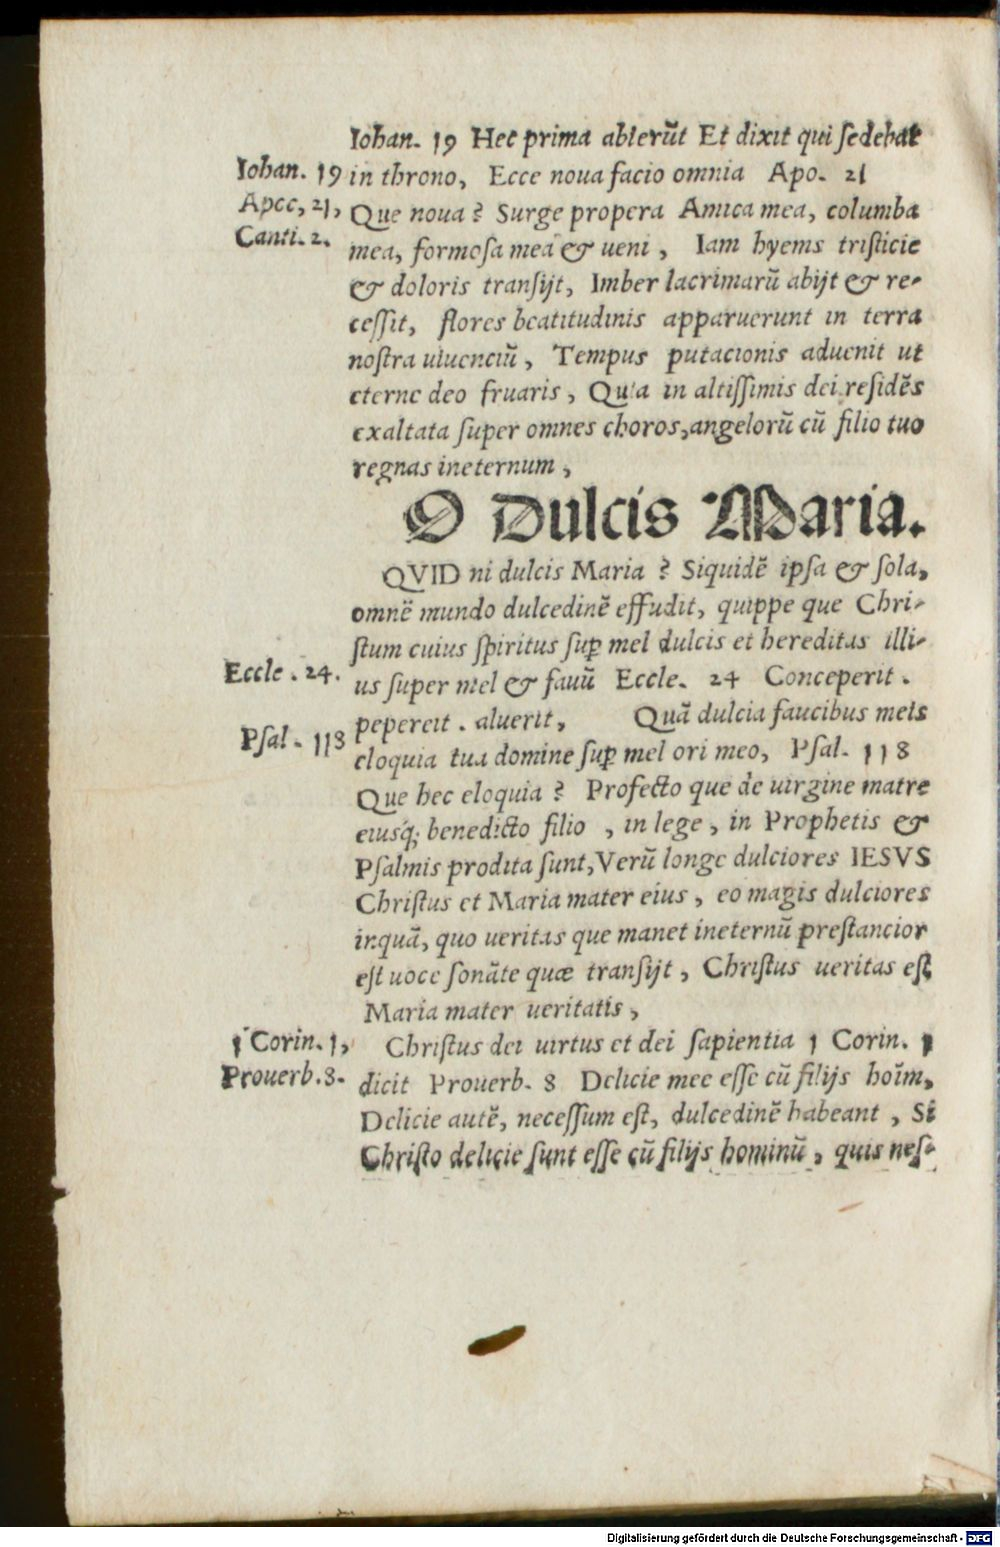 Iohan. 19 Hec prima abierūt Et dixit qui ſedebat
Iohan. 19
in throno, Ecce noua facio omnia Apo. 21
Apcc, 21,
Que noua ? Surge propera Amica mea, columba
Canti. 2.
mea, formoſa mea & ueni , Iam hyems triſticie
& doloris tranſijt, Imber lacrimarū abijt & re-
ceſſit, flores beatitudinis apparuerunt in terra
noſtra uiuenciū , Tempus putacionis aduenit ut
eterne deo fruaris , Quia in altiſſimis dei reſidēs
exaltata ſuper omnes choros,angelorū cū filio tuo
regnas ineternum ,
O Dulcis Maria.
QVID ni dulcis Maria ? Siquidē ipſa & ſola,
omnē mundo dulcedinē effudit, quippe que Chri-
ſtum cuius ſpiritus ſuꝑ mel dulcis et hereditas illi-
Eccle . 24.
us ſuper mel & fauū Eccle. 24 Conceperit .
pepereit . aluerit, Quā dulcia faucibus meis
Pſal. 118
eloquia tua domine ſuꝑ mel ori meo, Pſal. 118
Que hec eloquia ? Profecto que de uirgine matre
eiusq; benedicto filio , in lege , in Prophetis &
Pſalmis prodita ſunt,Verū longe dulciores IESVS
Chriſtus et Maria mater eius , eo magis dulciores
inquā, quo ueritas que manet ineternū preſtancior
eſt uoce ſonāte quæ tranſijt , Chriſtus ueritas eſt
Maria mater ueritatis ,
1 Corin. 1,
Chriſtus dei uirtus et dei ſapientia 1 Corin. 1
Prouerb. 8.
dicit Prouerb. 8 Delicie mee eſſe cū filijs hoīm,
Delicie autē, neceſſum eſt, dulcedinē habeant , Si
Chriſto delicie ſunt eſſe cū filijs hominū , quis neſ-
Digitalisierung gefördert durch die Deutsche Forschungsgemeinschaft - DFG